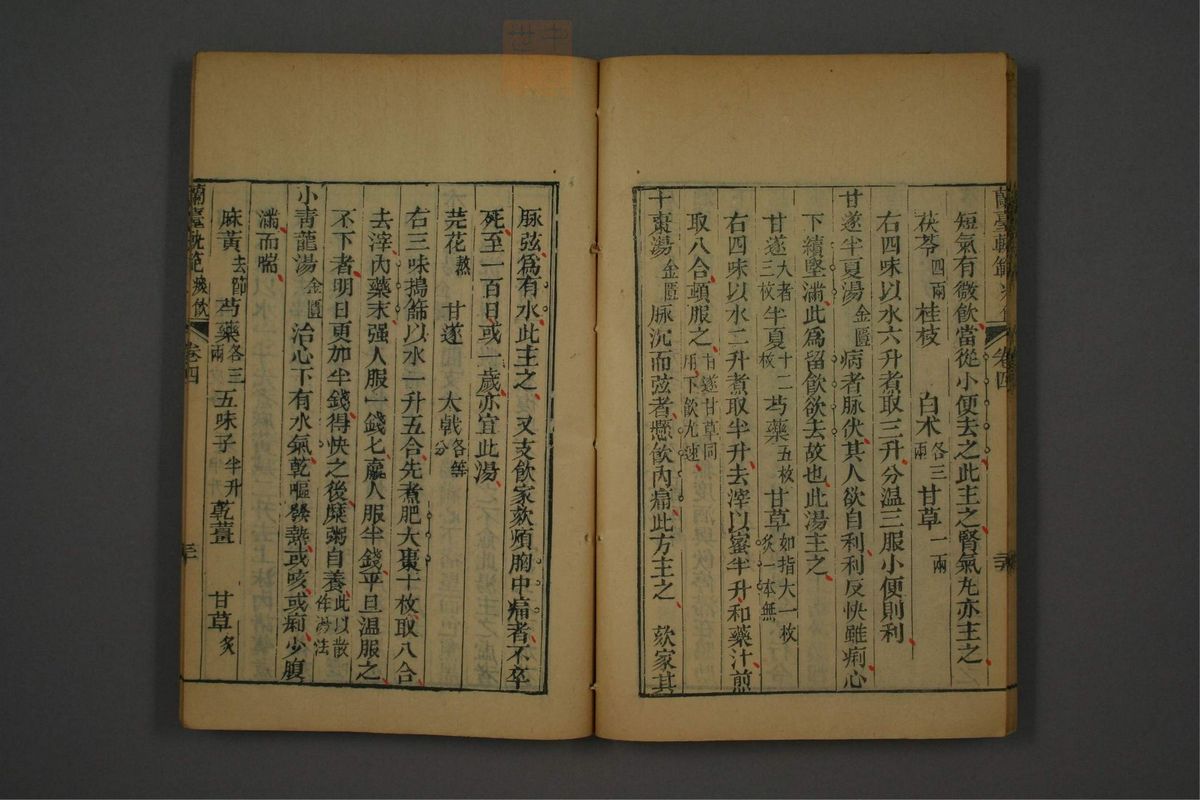 蘭臺軌範 卷四
短氣有微飲當從小便去之此主之腎氣丸亦主之
茯苓四兩 桂枝 白术各三兩 甘草一兩
右四味以水六升煮取三升分温三服小便則利
甘遂半夏湯金匱 病者脈伏其人欲自利利反快雖痢心
下續堅滿此爲留飲欲去故也此湯主之
甘遂大者三枚 半夏十二枚 芍藥五枚 甘草如指大一枚炙一本無
右四味以水二升煮取半升去滓以蜜半升和藥汁煎
取八合頓服之甘遂甘草同用下飲尤速
十棗湯金匱 脈沉而弦者懸飲內痛此方主之 欬家其
脈弦爲有水此主之 又支飲家欬煩胸中痛者不卒
死至一百日或一歲亦宜此湯
芫花熬 甘遂 大戟各等分
右三味搗篩以水一升五合先煮肥大棗十枚取八合
去滓內藥末强人服一錢匕羸人服半錢平旦温服之
不下者明日更加半錢得快之後糜粥自養此以散作湯法
小青龍湯金匱 治心下有水氣乾嘔發熱或咳或痢少腹
滿而喘
麻黃去節 芍藥各三兩 五味子半升 乾薑 甘草炙
蘭臺軌範 痰飲 卷四